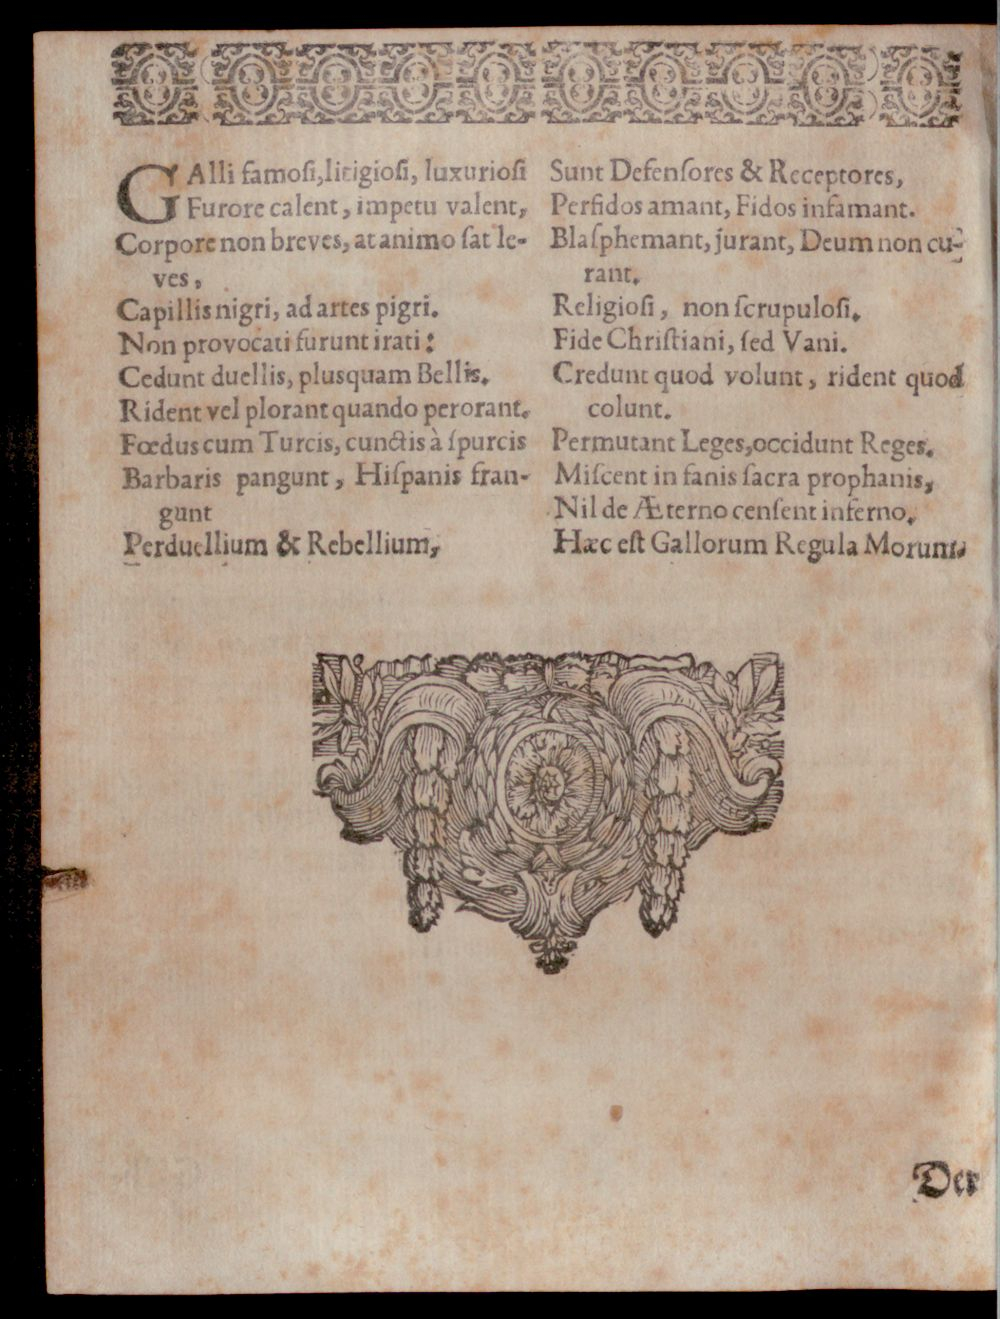 GAlli famoſi, litigioſi, luxurioſi
Furore calent, impetu valent,
Corpore non breves, at animo ſat le-
ves,
Capillis nigri, ad artes pigri.
Non provocati furunt irati:
Cedunt duellis, plusquam Bellis.
Rident vel plorant quando perorant.
Fœdus cum Turcis, cunctis à ſpurcis
Barbaris pangunt, Hiſpanis fran-
gunt
Perduellium & Rebellium,
Sunt Defenſores & Receptores,
Perfidos amant, Fidos infamant.
Blaſphemant, jurant, Deum non cu-
rant.
Religioſi, non ſcrupuloſi.
Fide Chriſtiani, ſed Vani.
Credunt quod volunt, rident quod
colunt.
Permutant Leges, occidunt Reges.
Miſcent in fanis ſacra prophanis,
Nil de Æterno cenſent inferno.
Hæc eſt Gallorum Regula Morum.
Der